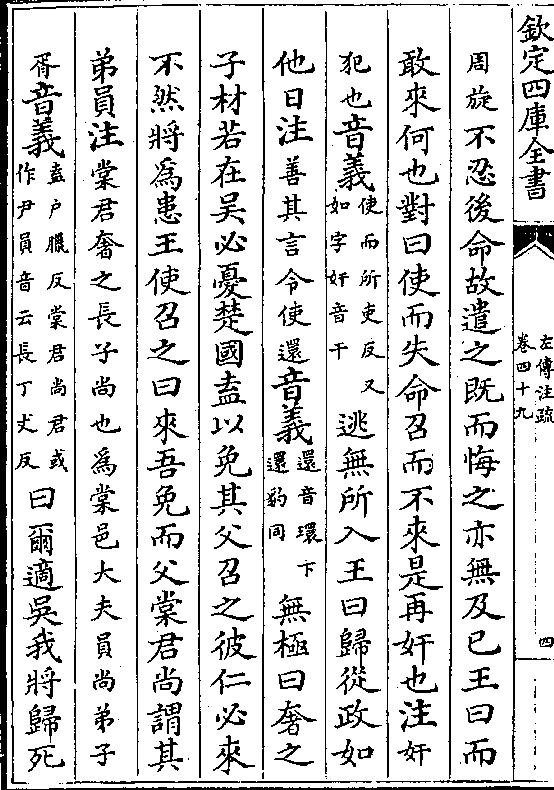 欽定四庫全書
左傳注疏
卷四十九
四
周旋不忍後命故遣之既而悔之亦無及已王曰而
敢來何也對曰使而失命召而不來是再奸也注奸
犯也音義使而所吏反又如字奸音干逃無所入王曰歸從政如
他日注善其言令使還音義還音環下還豹同無極曰奢之
子材若在吳必憂楚國盍以免其父召之彼仁必來
不然將為患王使召之曰來吾免而父棠君尚謂其
弟員注棠君奢之長子尚也為棠邑大夫員尚弟子
胥音義盍户臘反棠君尚君或作尹員音云長丁丈反曰爾適吳我將歸死